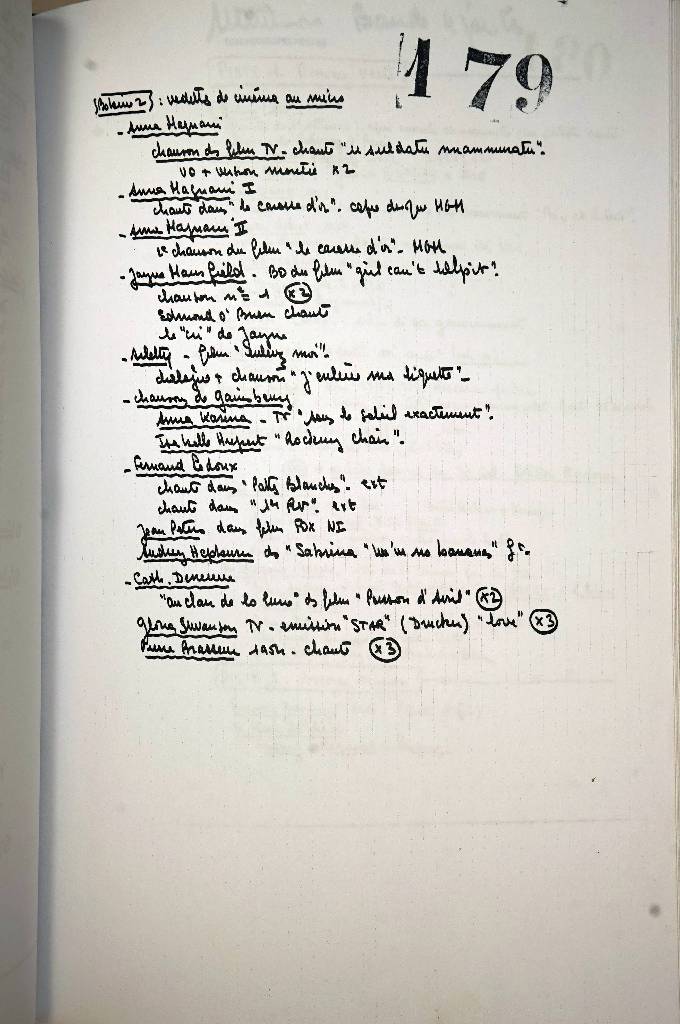 179
{Bobino 2} : vedettes de cinéma au micro
- Anna Magnani
chanson ds film TV - chante "u suldatu nnammuratu".
VO + version montée x2
- Anna Magnani I
chante dans "le carosse d'or". MGM
- Anna Magnani II
1e chanson du film "le carosse d'or" - MGM
- Jayne Mansfield - BO du film "girl can't help it".
chanson n° 1 (x2)
Edmond O'Brien chante
le "cri" de Jayne
- Arletty - film
dialogue + chanson "j'enlève ma liquette" -
- chansons de Gainsbourg
Anna Karina - TV "sous le soleil exactement".
Isabelle Huppert "Rocking chair".
- Fernand Ledoux
chante dans "Patts Blanches". ext
chante dans "1er RV". ext
Jean Peters dans film FOX NI
Audrey Hepburn ds "Sabrina" no bananas"
- Cath. Deneuve
"au clair de la lune" ds film "Poisson d'Avril" (x2)
Gloria Swanson TV - émission "STAR" (Drucker) "love" (x3)
Pierre Brasseur chante (x3)